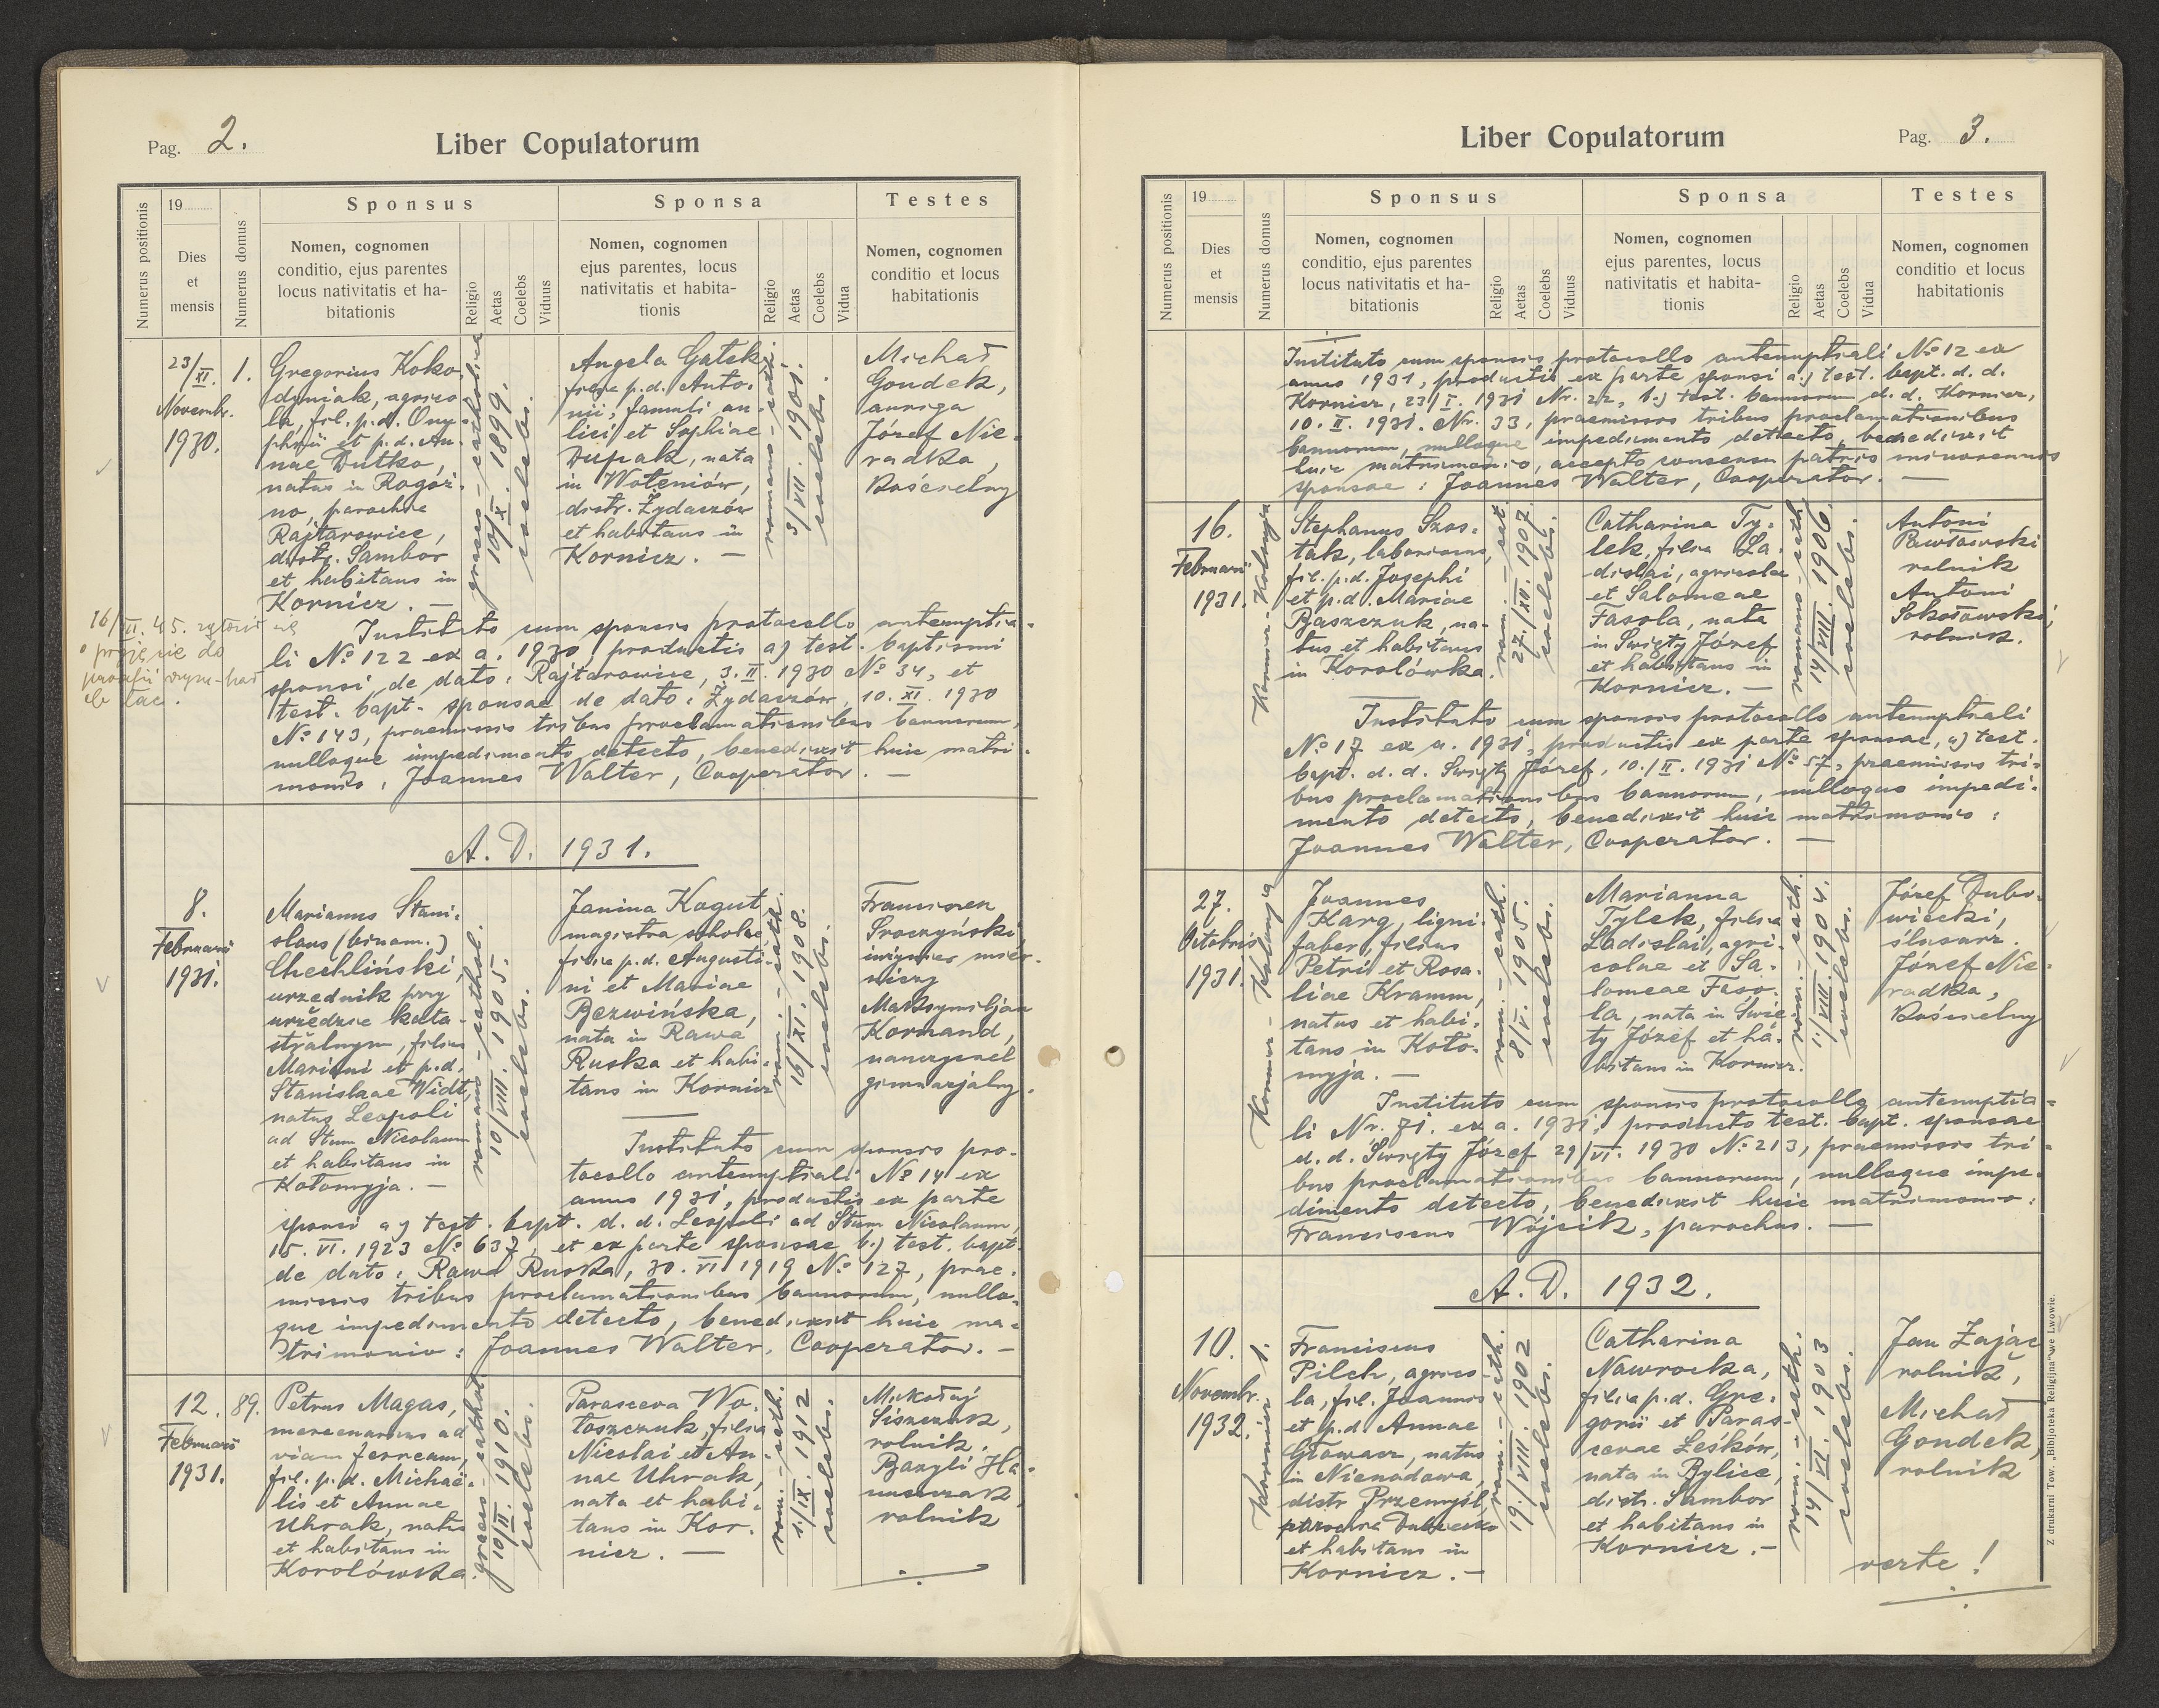 Pag. 2.
Liber Copulatorum
Numerus positionis
19
Dies
et
mensis
Numerus domus
Sponsus
Nomen, cognomen
conditio, ejus parentes
locus nativitatis et ha-
bitationis
Religio
Aetas
Coelebs
Viduus
Sponsa
Nomen, cognomen
ejus parentes, locus
nativitatis et habita-
tionis
Religio
Aetas
Coelebs
Vidua
Testes
Nomen, cognomen
conditio et locus
habitationis
23/XI.
Novembr.
1930.
1.
Gregorius Koko-
dyniak, agrico-
la, fil. p.d. Onu-
phrii et p.d. An-
nae Dutko,
natus in Rogóź-
no, parochiae
Rajtarowice,
distr. Sambor
et habitans in
Kornicz. —
graeco-catholicus
10/X. 1899.
coelebs.
Angela Gatek
filia p.d. Anto-
nii, famuli au-
lici et Sophiae
Dupak, nata
in Wołeniów,
distr. Żydaczów
et habitans in
Kornicz. —
romano-cath.
3/VII. 1901.
coelebs.
Michał
Gondek,
auriga
Józef Nie-
radka,
Kościelny
16/VI. 45.
przejęcie do
parafii rzym-kat
Instituto cum sponsis protocollo antenuptia-
li No 122 ex a. 1930, productis a) test. baptismi
sponsi, de dato: Rajtarowice, 3. II. 1930 No 34, et
test. bapt. sponsae de dato: Żydaczów, 10. XI. 1930
No 143, praemissis tribus proclamationibus bannorum,
nulloque impedimento detecto, benedixit huic matri-
monio: Joannes Walter, Cooperator. —
A. D. 1931.
8.
Februarii
1931.
Marianus Stani-
slaus (binom.)
Chechliński,
urzędnik przy
urzędzie kata-
stralnym, filius
Mariani et p.d.
Stanislaae Widt,
natus Leopoli
ad Stum Nicolaum
et habitans in
Kołomyja. —
romano-cathol.
10/VIII. 1905.
coelebs.
Janina Kogut
magistra scholae,
filia p.d. Augusti-
ni et Mariae
Bezwińska,
nata in Rawa
Ruska et habi-
tans in Kornicz
rom.-cath.
16/XI. 1908.
coelebs.
Franciszek
Sroczyński,
inżynier mier-
niczy
Maksymiljan
Kornand,
nauczyciel
gimnazjalny.
Instituto cum sponsis pro-
tocollo antenuptiali No 14 ex
anno 1931, productis ex parte
sponsi a) test. bapt. d. d. Leopoli ad Stum Nicolaum,
15. VI. 1923 No 637, et ex parte sponsae b.) test. bapt.
de dato: Rawa Ruska, 30. VI 1919 No 127, prae-
missis tribus proclamationibus bannorum, nullo-
que impedimento detecto, benedixit huic ma-
trimonio: Joannes Walter, Cooperator. —
12.
Februarii
1931.
89.
Petrus Magas,
mercenarius ad
viam ferream,
fil. p.d. Michaë-
lis et Annae
Uhrak, natus
et habitans in
Korolówka.
graeco-cathol.
10/II. 1910.
coelebs.
Parasceva Wo-
łoszczuk, filia
Nicolai et An-
nae Uhrak,
nata et habi-
tans in Kor-
nicz. —
rom.-cath.
1./IX. 1912
coelebs.
Mikołaj
Siszczuk,
rolnik.
Bazyli
rolnik
Liber Copulatorum
Pag. 3.
Numerus positionis
19
Dies
et
mensis
Numerus domus
Sponsus
Nomen, cognomen
conditio, ejus parentes
locus nativitatis et ha-
bitationis
Religio
Aetas
Coelebs
Viduus
Sponsa
Nomen, cognomen
ejus parentes, locus
nativitatis et habita-
tionis
Religio
Aetas
Coelebs
Vidua
Testes
Nomen, cognomen
conditio et locus
habitationis
Instituto cum sponsis protocollo antenuptiali No 12 ex
anno 1931, productis ex parte sponsi a.) test. bapt. d. d.
Kornicz, 23/I. 1931 Nr. 22, b.) test. bannorum d. d. Kornicz,
10. II. 1931. Nr. 33, praemissis tribus proclamationibus
bannorum, nulloque impedimento detecto, benedixit
huic matrimonio, accepto consensu patris minorennis
sponsae: Joannes Walter, Cooperator. —
16.
Februarii
1931.
Kornicz-Kołomyja
Stephanus Szos-
tak, laboriosus,
fil. p.d. Josephi
et p.d. Mariae
Baszczuk, na-
tus et habitans
in Korolówka.
rom.-cat
27./XII. 1907
coelebs.
Catharina Ty-
lek, filia La-
dislai, agricolae
et Salomeae
Fasola, nata
in Święty Józef
et habitans in
Kornicz. —
romano-cath
14/VIII. 1906.
coelebs.
Antoni
Pawłowski
rolnik
Antoni
Sokołowski,
rolnik.
Instituto cum sponsis protocollo antenuptiali
No 17 ex a. 1931, productis ex parte sponsae, a) test.
bapt. d. d. Święty Józef, 10./II. 1931 No 57, praemissis tri-
bus proclamationibus bannorum, nulloque impedi-
mento detecto, benedixit huic matrimonio:
Joannes Walter, Cooperator. —
27.
Octobris
1931.
Kornicz-Kołomyja
Joannes
Karg, ligni-
faber, filius
Petri et Rosa-
liae Kramm,
natus et habi-
tans in Koło-
myja. —
rom.-cath.
8/V. 1905.
coelebs.
Marianna
Tylek, filia
Ladislai, agri-
colae et Sa-
lomeae Faso-
la, nata in Świę-
ty Józef et ha-
bitans in Kornicz.
rom.-cath.
1/VIII 1904.
coelebs.
Józef Dubo-
wiecki,
ślusarz.
Józef Nie-
radka,
Kościelny
Instituto cum sponsis protocollo antenuptia-
li Nr. 71. ex a. 1931, producto test. bapt. sponsae
d. d. Święty Józef 29/VI. 1930 No 213, praemissis tri-
bus proclamationibus bannorum, nulloque impe-
dimento detecto, benedixit huic matrimonio:
Franciscus Wójcik, parochus. —
A. D. 1932.
10.
Novembr.
1932.
Kornicz 1.
Franciscus
Pilch, agrico-
la, fil. Joannis
et p.d. Annae
Głowacz, natus
in Nienadowa,
distr Przemyśl,
parochia Dubiecko
et habitans in
Kornicz. —
rom.-cath.
19./VIII. 1902
coelebs.
Catharina
Nawrocka,
filia p.d. Gre-
gorii et Paras-
cevae Leśków,
nata in Bylice,
distr. Sambor
et habitans in
Kornicz. —
rom.-cath.
14/VI. 1903
coelebs.
Jan Zając
rolnik,
Michał
Gondek,
rolnik
verte!
Z drukarni Tow. „Bibljoteka Religijna" we Lwowie.